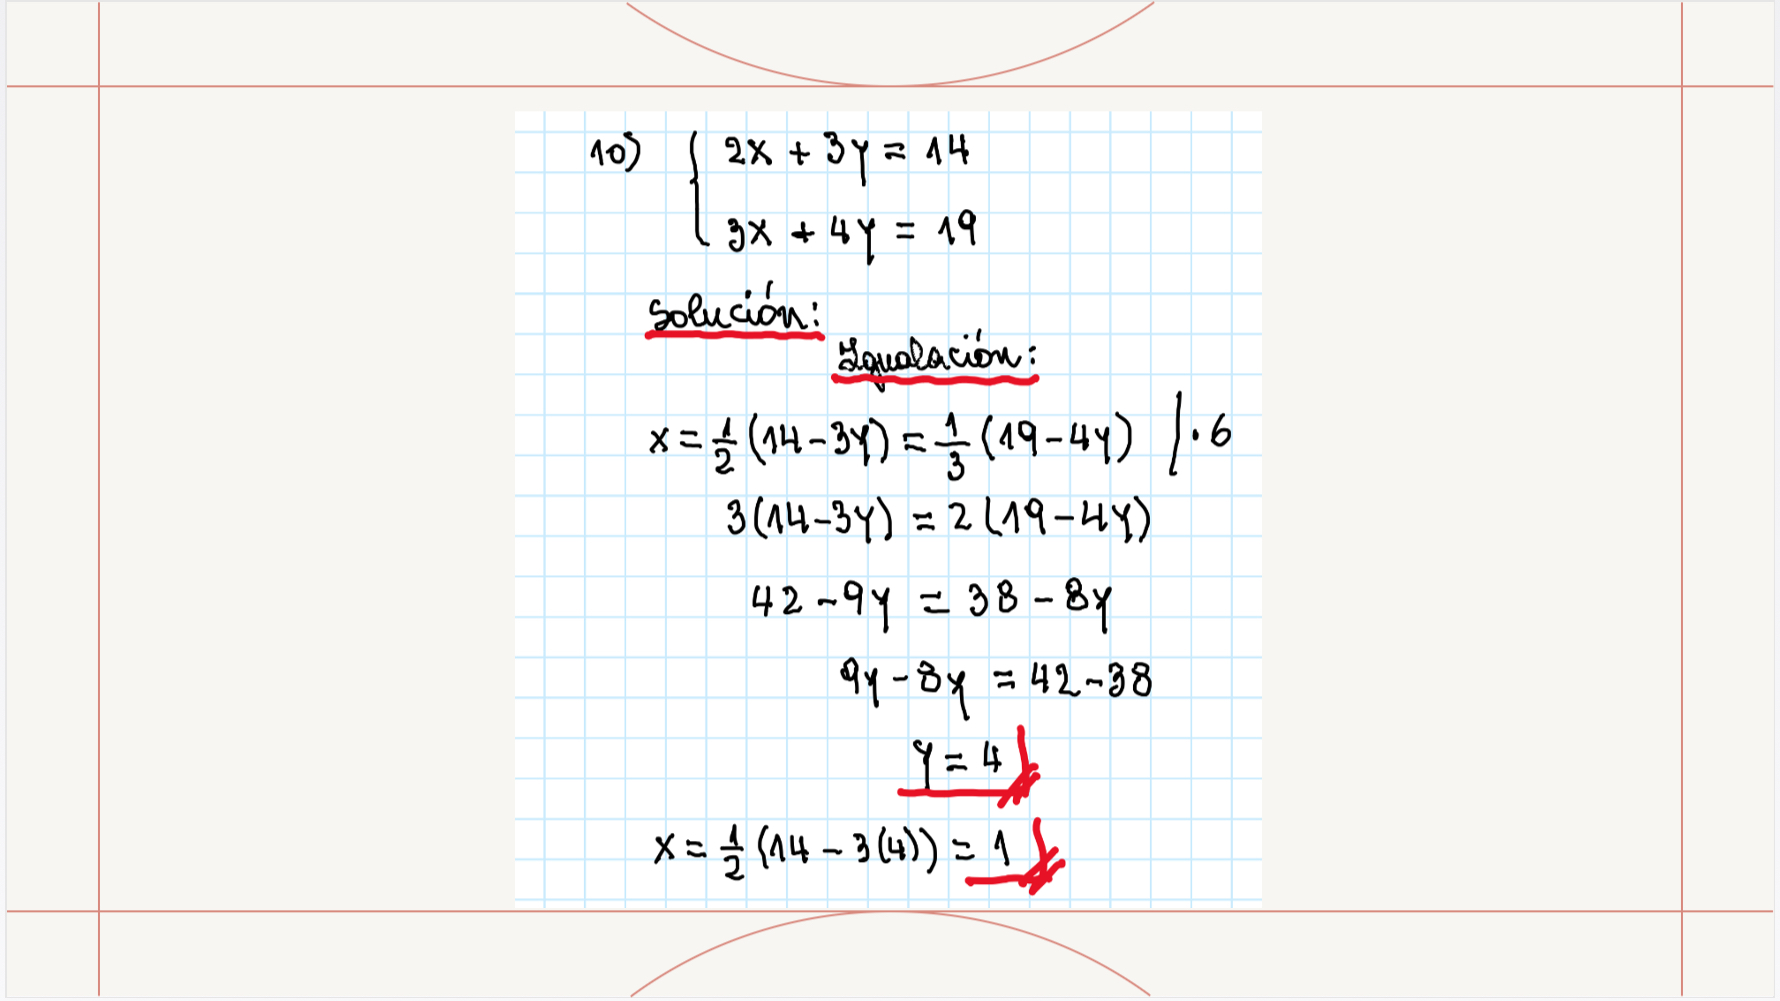 10) { 2x + 3y = 14
3x + 4y = 19
Solución:
Igualación:
x = 1/2 (14 - 3y) = 1/3 (19 - 4y) | · 6
3(14 - 3y) = 2(19 - 4y)
42 - 9y = 38 - 8y
9y - 8y = 42 - 38
y = 4
x = 1/2 (14 - 3(4)) = 1